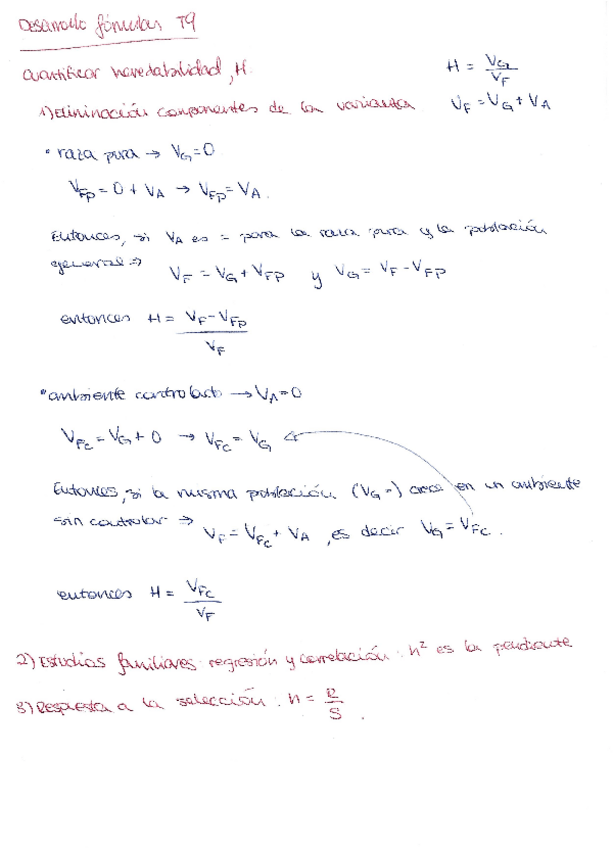 Desarrollo fórmulas T9
Cuantificar heredabilidad, H.
H = V_G / V_F
V_F = V_G + V_A
1) Eliminación componentes de la varianza
• raza pura → V_G = 0
V_Fp = 0 + V_A → V_Fp = V_A.
Entonces, si V_A es = para la raza pura y la población
general ⇒
V_F = V_G + V_Fp y V_G = V_F - V_Fp
entonces H = V_F - V_Fp / V_F
• ambiente controlado → V_A = 0
V_Fc = V_G + 0 → V_Fc = V_G
Entonces, si la misma población (V_G =) crece en un ambiente
sin controlar ⇒
V_F = V_Fc + V_A, es decir V_G = V_Fc.
entonces H = V_Fc / V_F
2) Estudios familiares: regresión y correlación: h² es la pendiente
3) Respuesta a la selección: h = R / S.